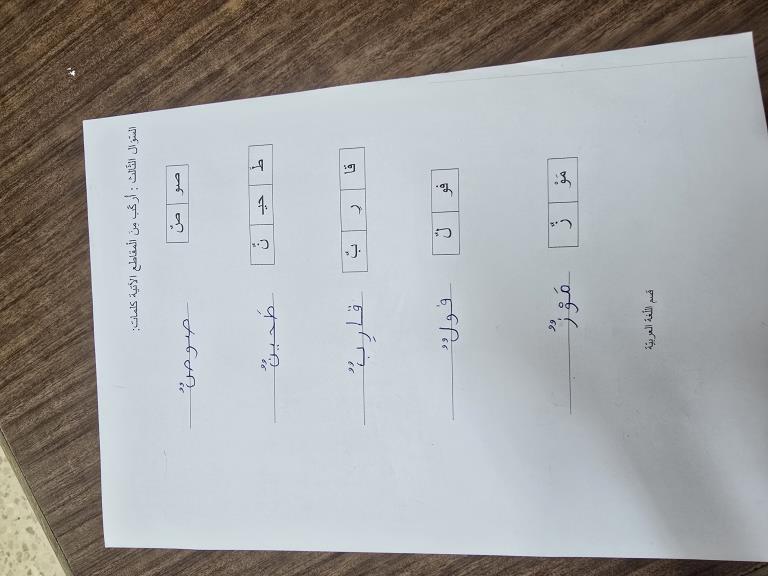 السؤال الثالث : أركّب مِنَ المقاطع الآتية كلمات:
صو صٌ
صوصٌ
طَ حيـ نٌ
طَحينٌ
قا رِ بٌ
قارِبٌ
فو لٌ
فولٌ
مَوْ زٌ
مَوْزٌ
قسم اللّغة العربيّة